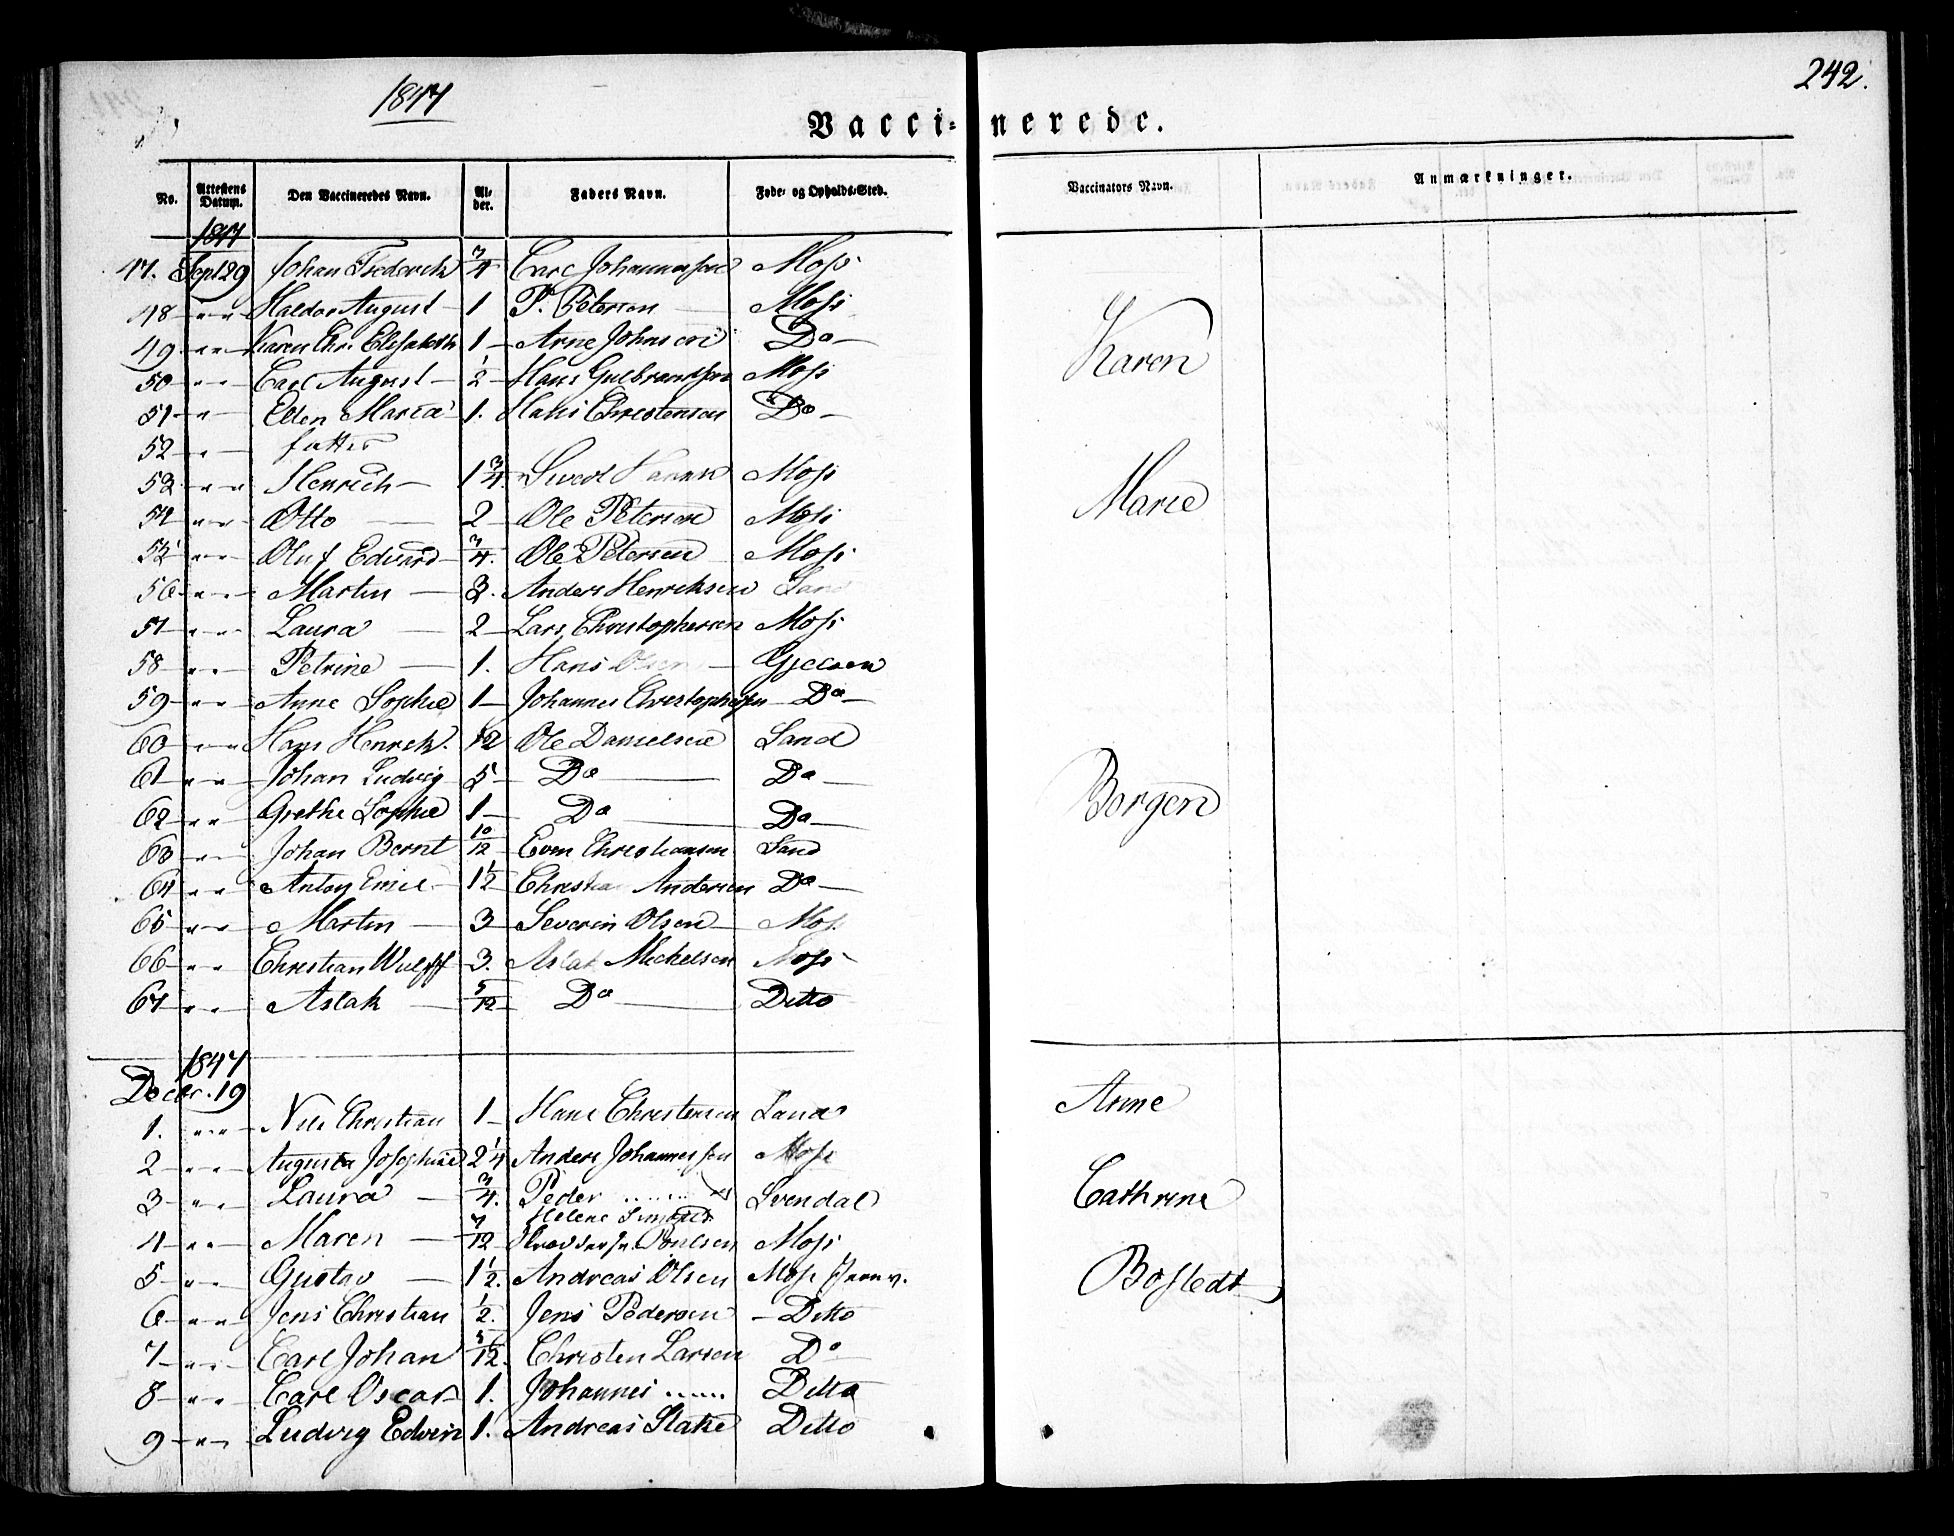 1847
242.
Vaccinerede.
No. Attestens Datum. Den Vaccineredes Navn. Alder. Faders Navn. Føde- og Opholds-Sted. Vaccinators Navn. Anmærkninger.
1847
47. Sept 29 Johan Frederick 3/4 Carl Johannessen Moss
48 " " Haldor August 1 P. Petersen Moss
49 " " Karen Chr. Elisabeth 1 Arne Johnsen Do Karen
50 " " Carl August 1/2 Hans Gulbrandsen Moss
51 " Ellen Maria 1. Hans Christensen Do
52 "
53 " " Henrich 1 3/4 Moss Marie
54 " " Otto 2 Ole Petersen Moss
55 " " Oluf Edvard 3/4. Ole Petersen Moss
56 " " Martin 3. Anders Henriksen Land
57 " " Laura 2 Lars Christophersen Moss
58 " " Petrine 1. Hans Olsen
59 " " Anne Sophie 1 Johannes Christophersen Do
60 " " Hans Henrik. Ole Danielsen Land
61 " " Johan Ludvig 5 Do Do Borgen
62 " " Grethe Sophie 1 Do Do
63 " " Johan Bernt 10/12 Even Christiansen Land
64 " " Anton Emil 1 1/2 Christian Andersen Do
65 " " Martin 3 Severin Olsen Moss
66 " " Christian Wulff 3. Aslak Michelsen Moss
67 " " Aslak 5/12 Do Ditto
1847
Decbr. 19
1. " " Nils Christian 1 Hans Christensen Land Anne
2 " " Augusta Josephine 2 1/4 Anders Johannessen Moss
3 " " Laura 3/4. Peder ...... Svendal Cathrine
Helene
4 " " Maren 7/12 Poulsen Moss
5 " " Gustav 1 1/2. Andreas Olsen Moss Jernv. Bostedt
6 " " Jens Christian 1/2. Jens Pedersen Ditto
7 " " Carl Johan 5/12. Christen Larsen Do
8 " " Carl Oscar 1. Johannes ...... Ditto
9 " " Ludvig Edvin 1. Andreas Ditto